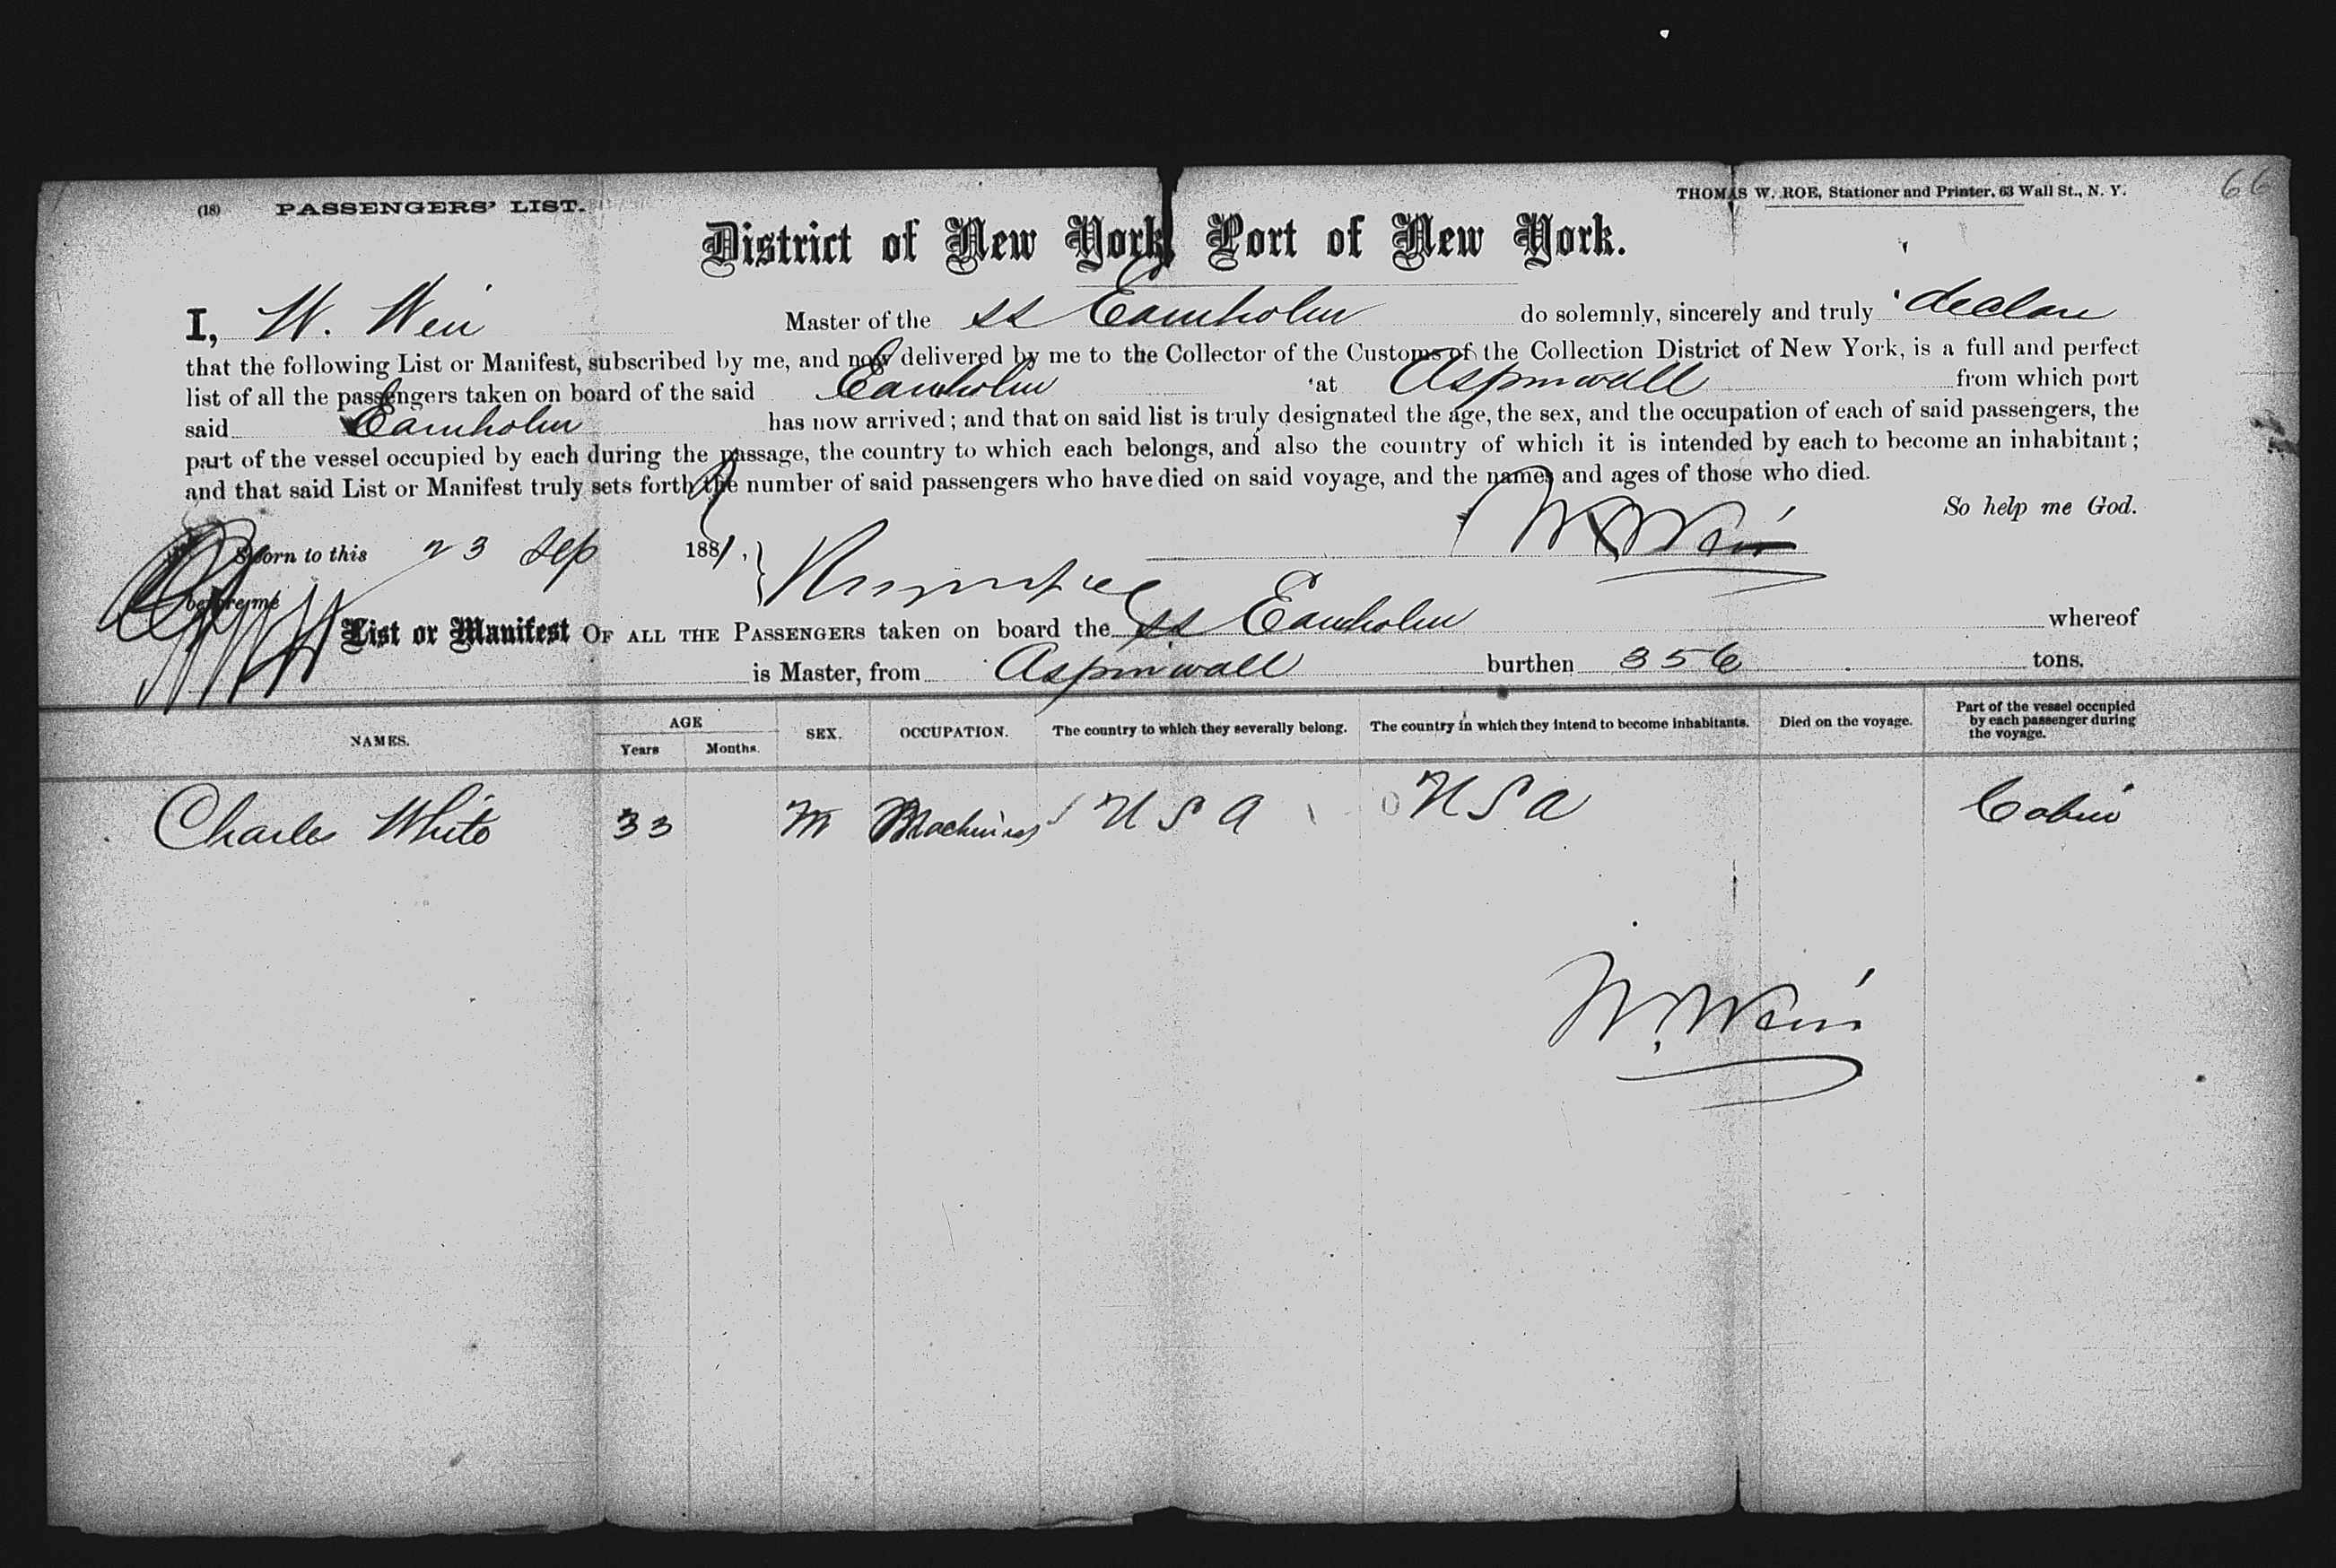 66
(18) PASSENGERS' LIST. THOMAS W. ROE, Stationer and Printer, 63 Wall St., N. Y.
District of New York, Port of New York.
I, W. Weir Master of the SS Eamholm do solemnly, sincerely and truly declare
that the following List or Manifest, subscribed by me, and now delivered by me to the Collector of the Customs of the Collection District of New York, is a full and perfect
list of all the passengers taken on board of the said Eamholm at Aspinwall from which port
said Eamholm has now arrived; and that on said list is truly designated the age, the sex, and the occupation of each of said passengers, the
part of the vessel occupied by each during the passage, the country to which each belongs, and also the country of which it is intended by each to become an inhabitant;
and that said List or Manifest truly sets forth the number of said passengers who have died on said voyage, and the names and ages of those who died.
So help me God.
Sworn to this 23 Sep 1881, W Weir
before me
List or Manifest OF ALL THE PASSENGERS taken on board the SS Eamholm whereof
is Master, from Aspinwall burthen 356 tons.
NAMES. AGE Years Months. SEX. OCCUPATION. The country to which they severally belong. The country in which they intend to become inhabitants. Died on the voyage. Part of the vessel occupied by each passenger during the voyage.
Charles White 33 M Machinist U S A U S A Cabin
W. Weir